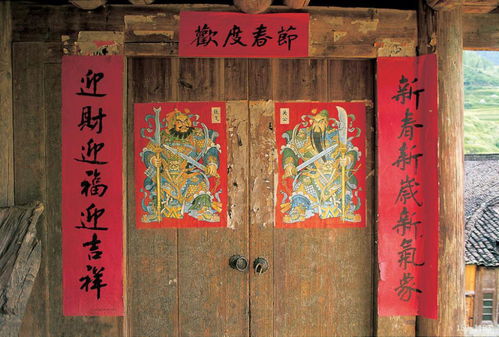 歡度春節
新春新歲新氣象
迎財迎福迎吉祥
关公